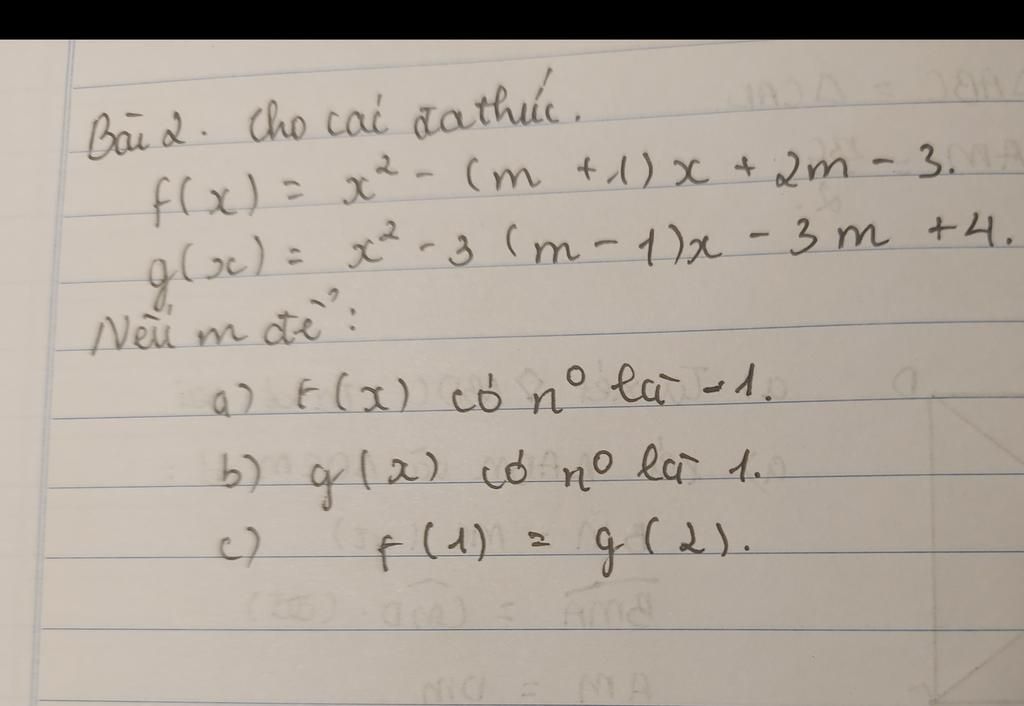 Bài 2. Cho cać đathức.
f(x) = x² - (m + 1) x + 2m - 3.
g(x) = x² - 3 (m - 1)x - 3 m + 4.
m để :
a) f(x) có n⁰ là -1.
b) g(x) có n⁰ là 1.
c) f(1) = g(2).